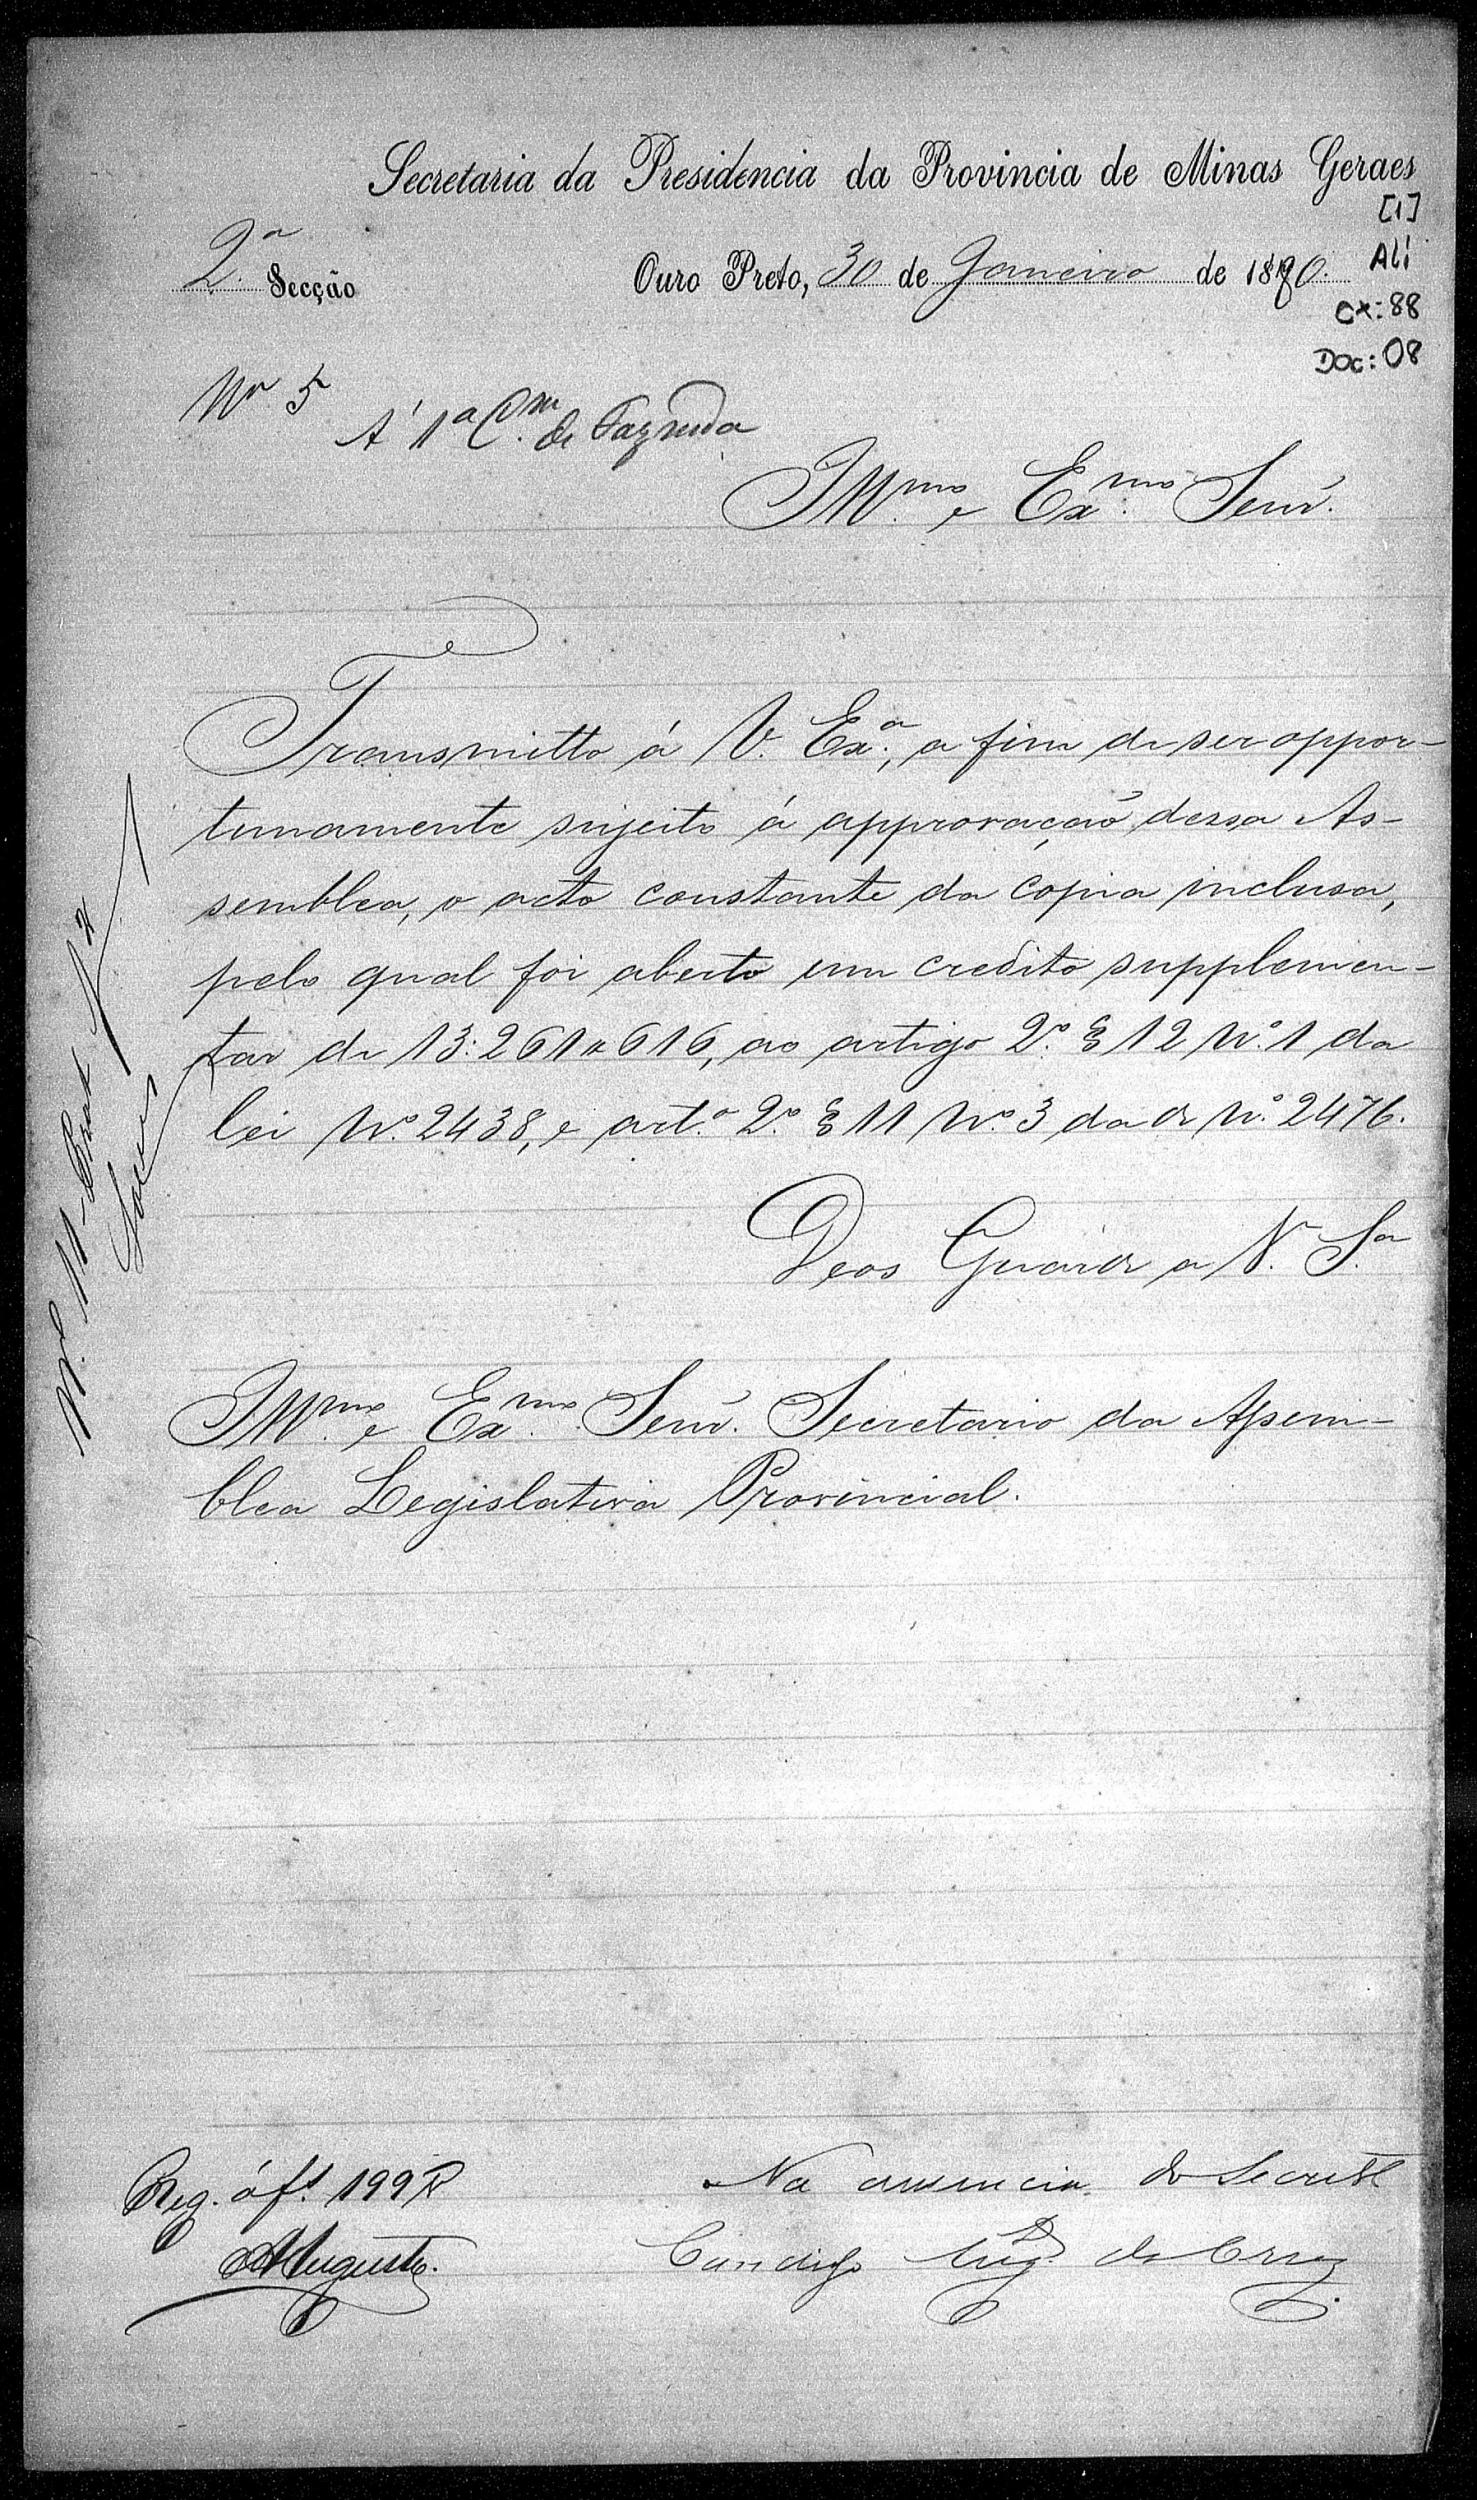 Secretaria da Presidencia da Provincia de Minas Geraes
[1]
2.ª Secção
Ouro Preto, 30 de Janeiro de 1880.
ALI
CX: 88
DOC: 08
Nº 5
Á 1ª C.m de Fazenda
Illmo. e Exmo. Senr.
Transmitto á V. Exª., a fim de ser oppor-
tunamente sujeito á approvação dessa As-
semblea, o acto constante da copia inclusa,
pelo qual foi aberto um credito supplemen-
tar de 13:261$616, ao artigo 2º. § 12 Nº. 1 da
lei Nº. 2438, e art.º 2º. § 11 Nº. 3 da de Nº. 2476.
Deos Guarde a V. Sª
Illmo. e Exmo. Senr. Secretario da Assem-
blea Legislativa Provincial.
Nº. 11
Reg. á fl. 199
Augusto.
Na ausencia do Secretº
Candido Aug. da Cruz